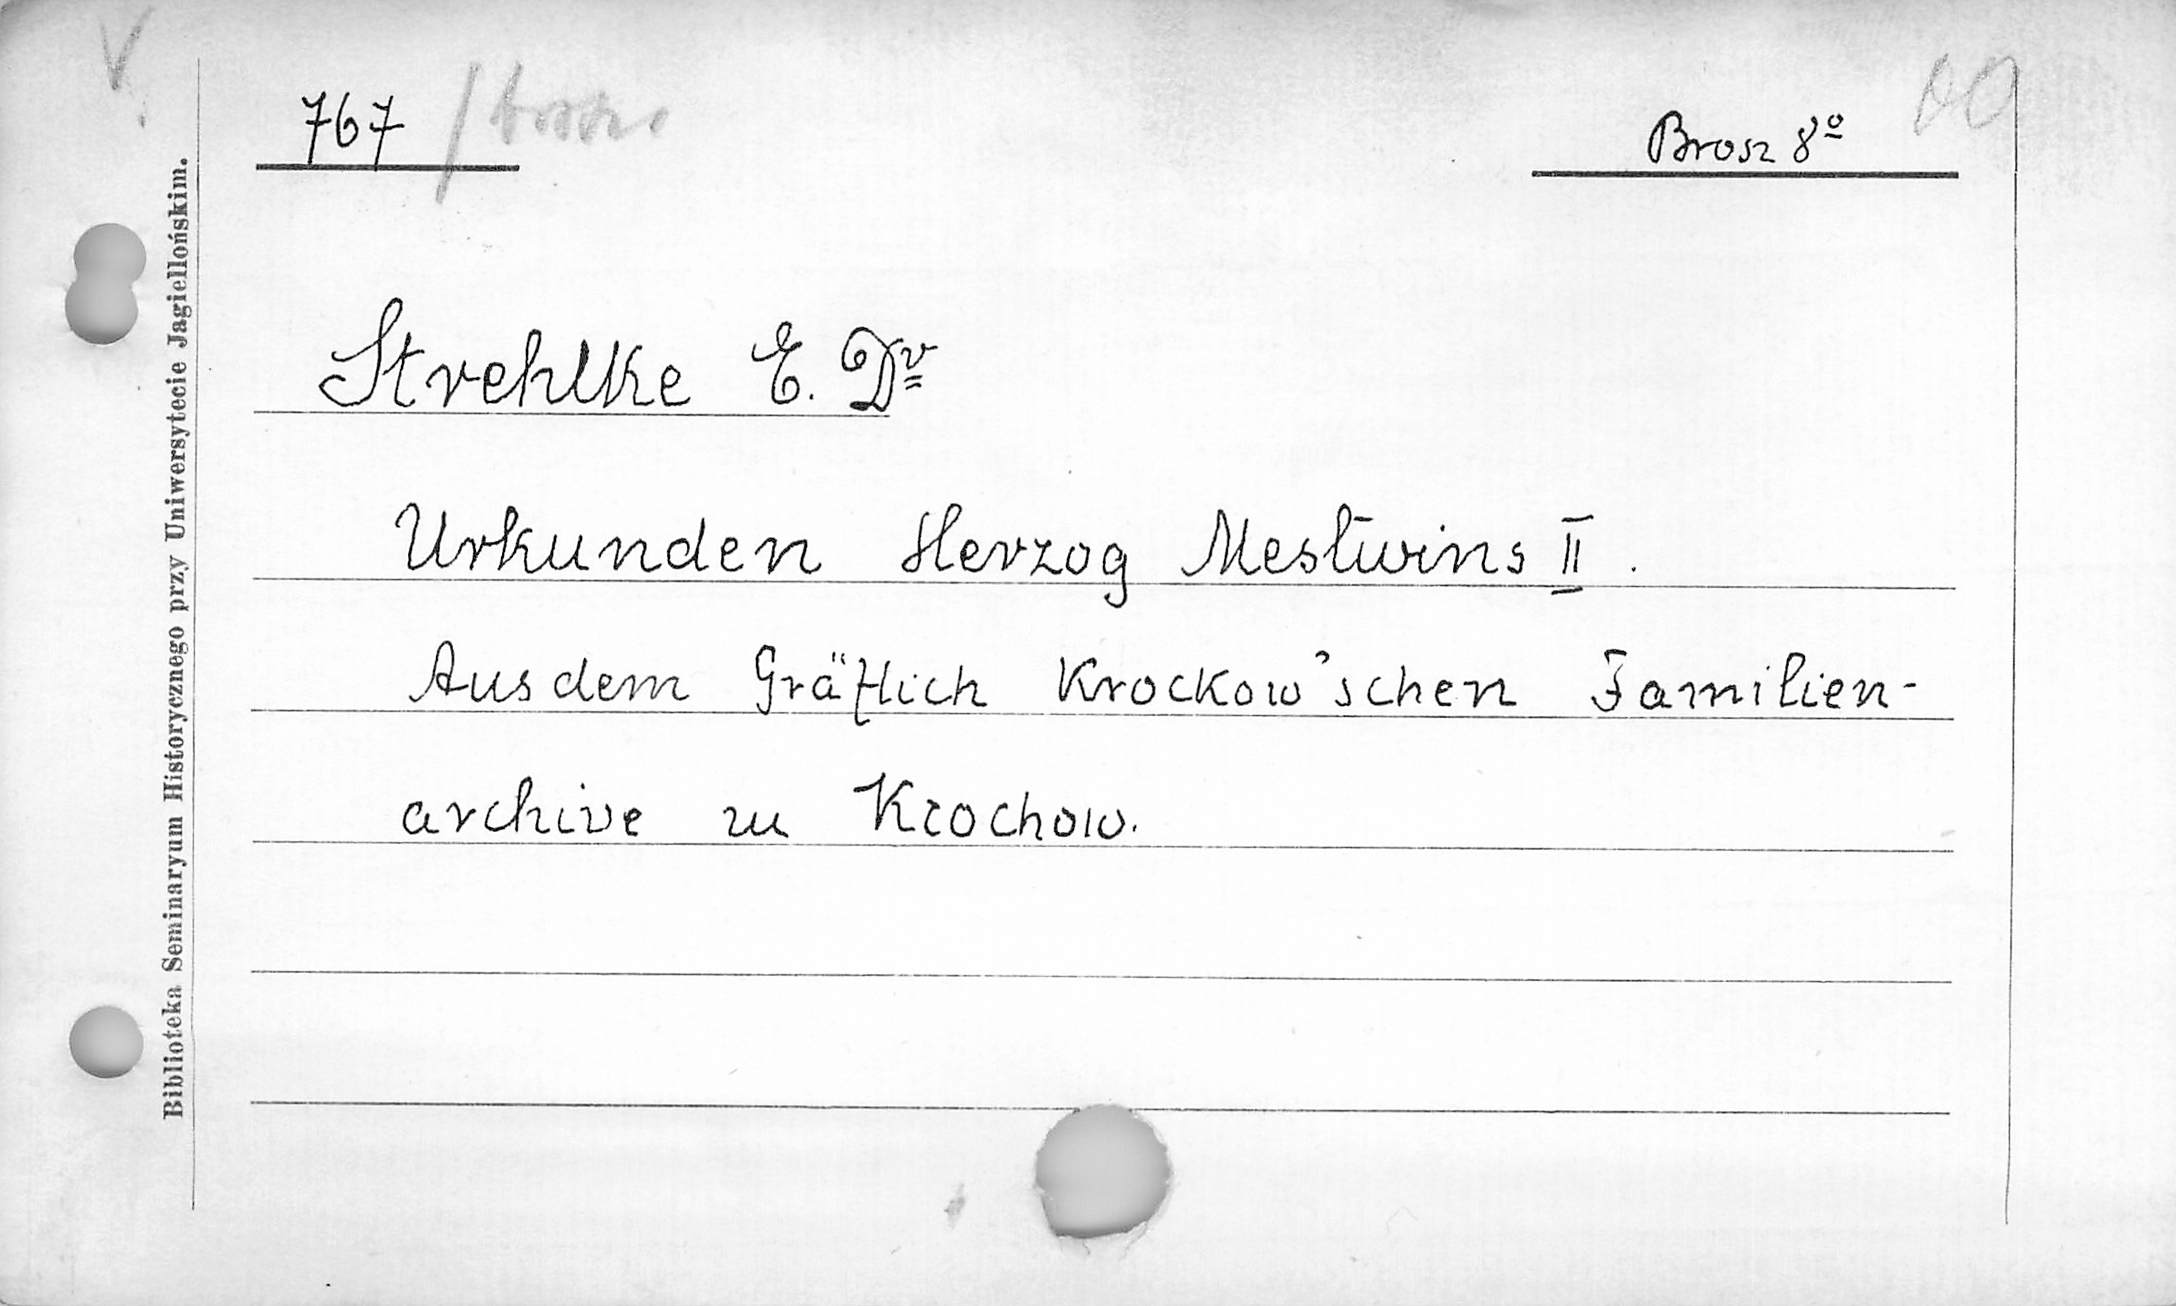 V
767 / brosz.
Brosz 8º
Strehlke E. Dr
Urkunden Herzog Mestwins II.
Aus dem Gräflich Krockow'schen Familien-
archive zu Krochow.
Biblioteka Seminaryum Historycznego przy Uniwersytecie Jagiellońskim.